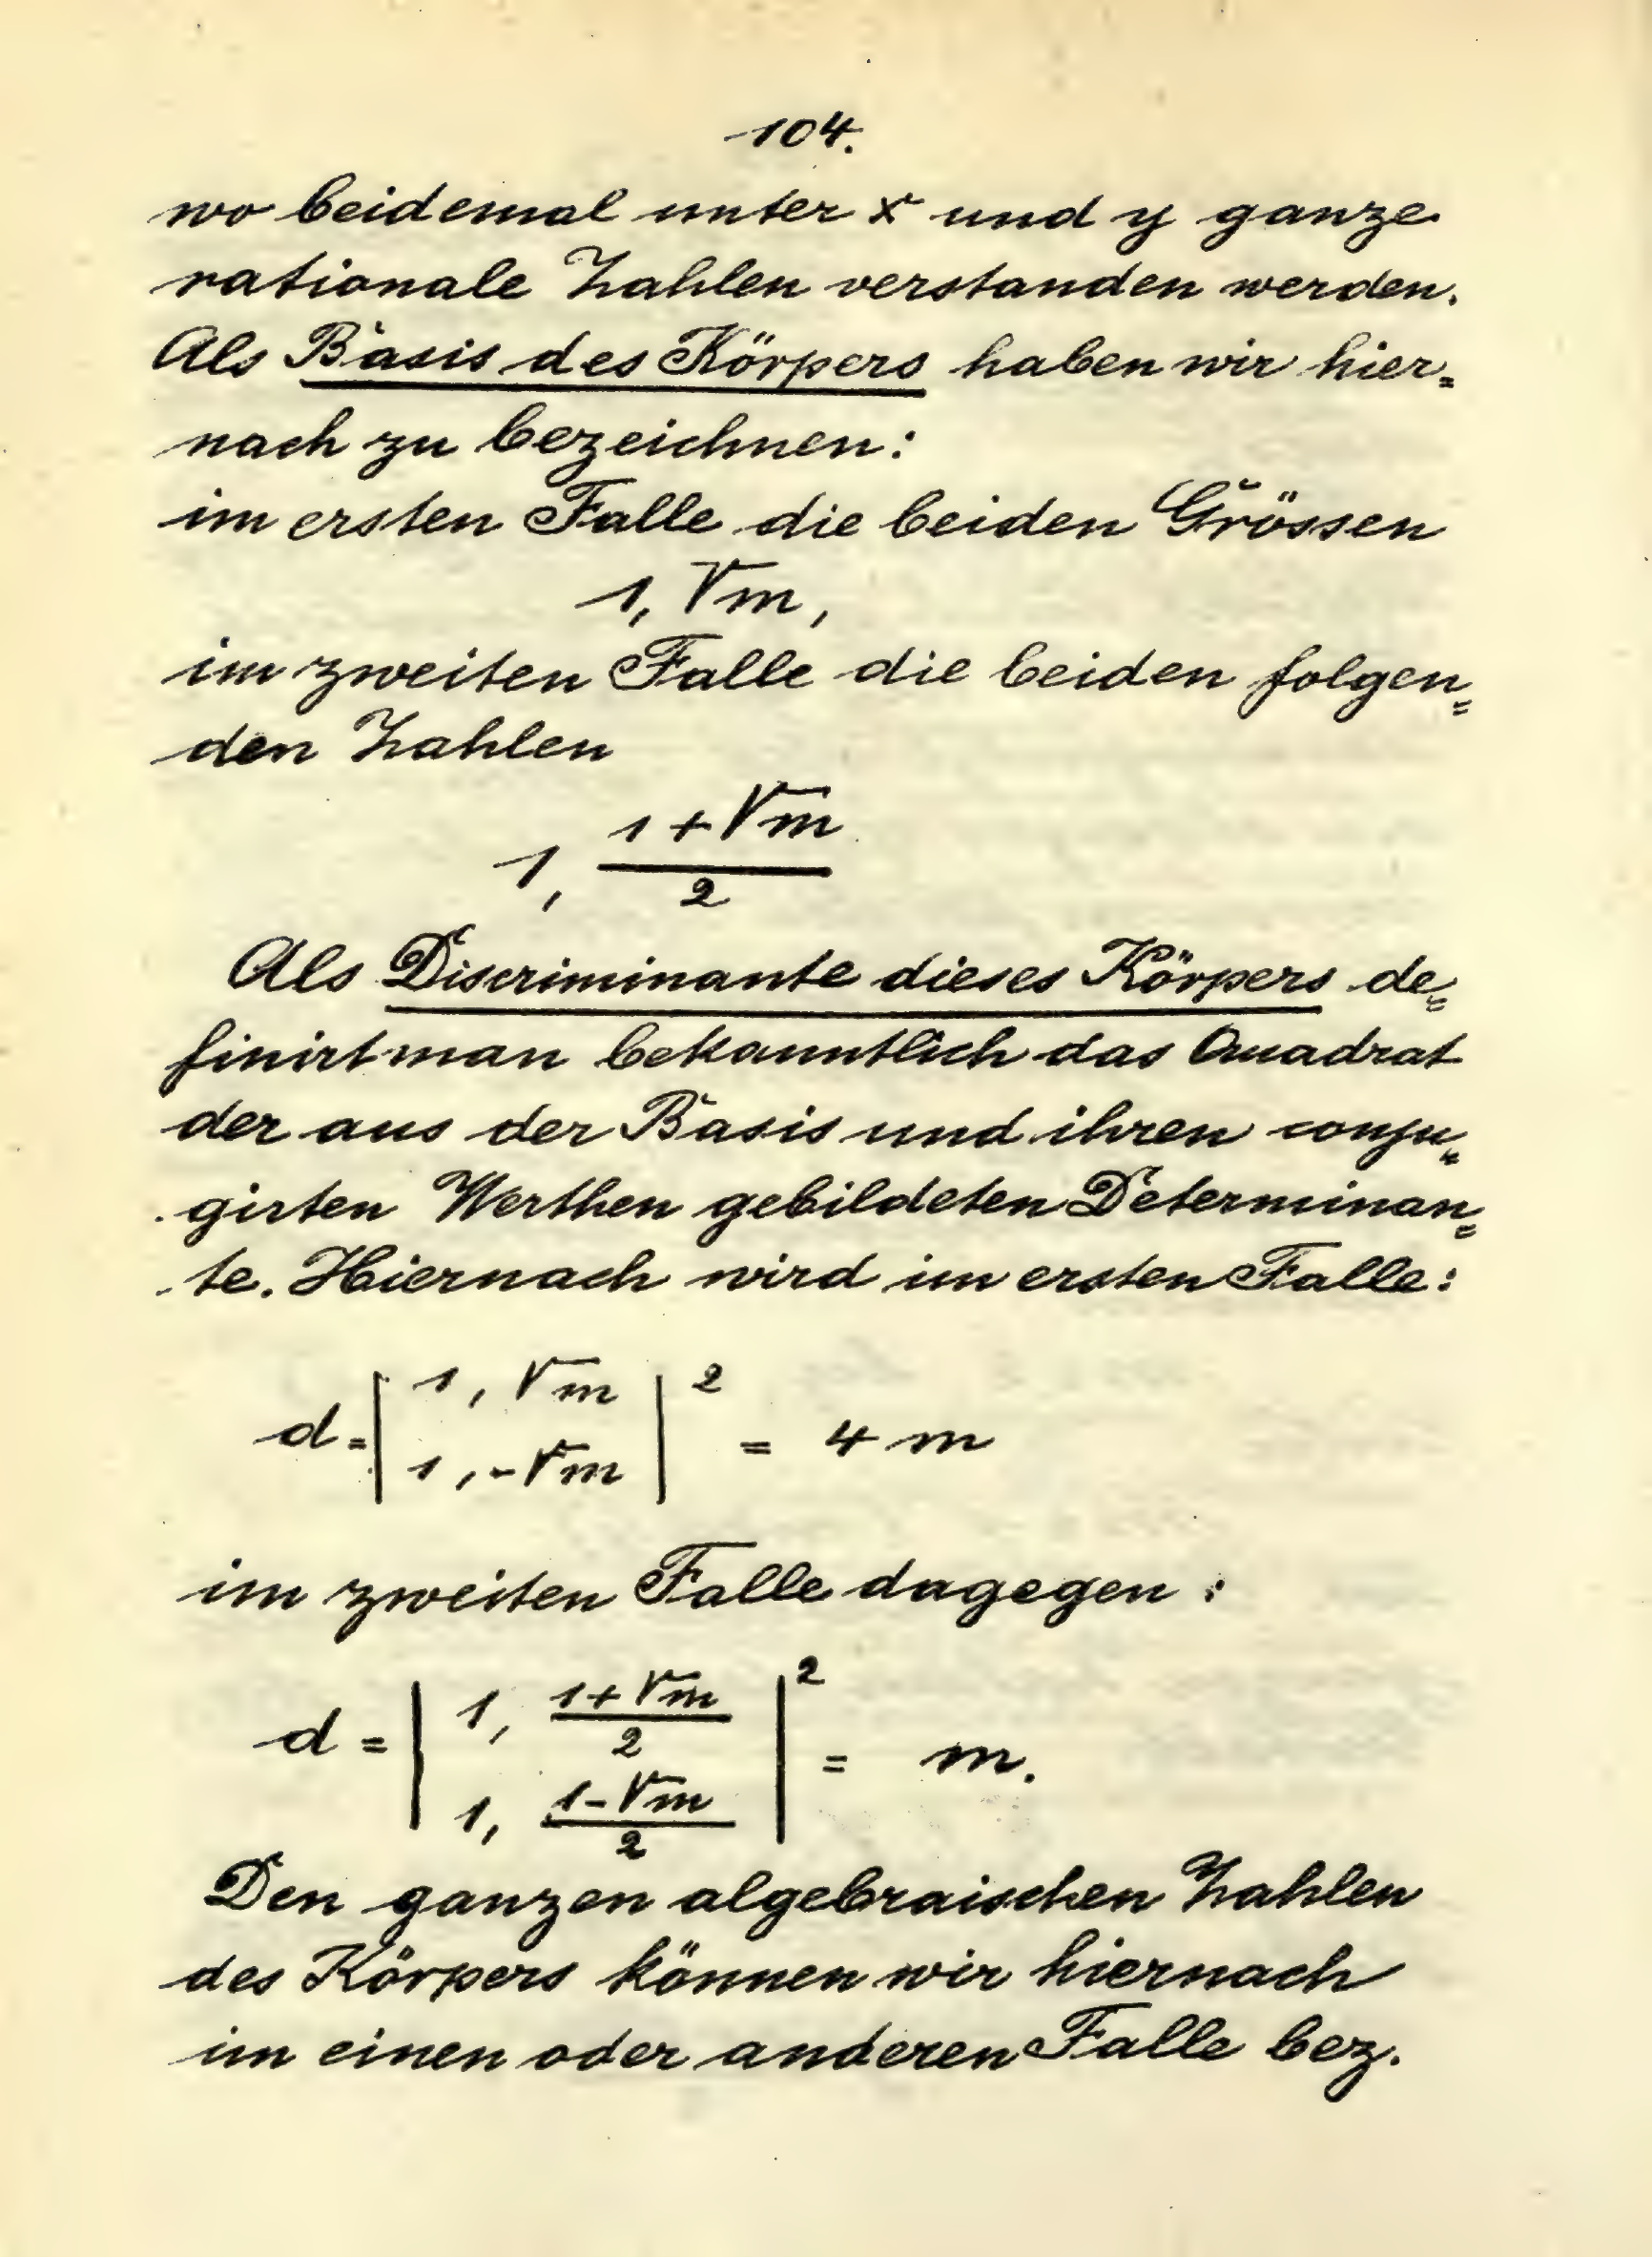 104.
wo beidemal unter x und y ganze
rationale Zahlen verstanden werden.
Als Basis des Körpers haben wir hier=
nach zu bezeichnen:
im ersten Falle die beiden Grössen
1, √m,
im zweiten Falle die beiden folgen=
den Zahlen
1, (1+√m)/2
Als Discriminante dieses Körpers de=
finirt man bekanntlich das Quadrat
der aus der Basis und ihren conju=
girten Werthen gebildeten Determinan=
te. Hiernach wird im ersten Falle:
d = | 1, √m ; 1, -√m |² = 4m
im zweiten Falle dagegen:
d = | 1, (1+√m)/2 ; 1, (1-√m)/2 |² = m.
Den ganzen algebraischen Zahlen
des Körpers können wir hiernach
im einen oder anderen Falle bez.